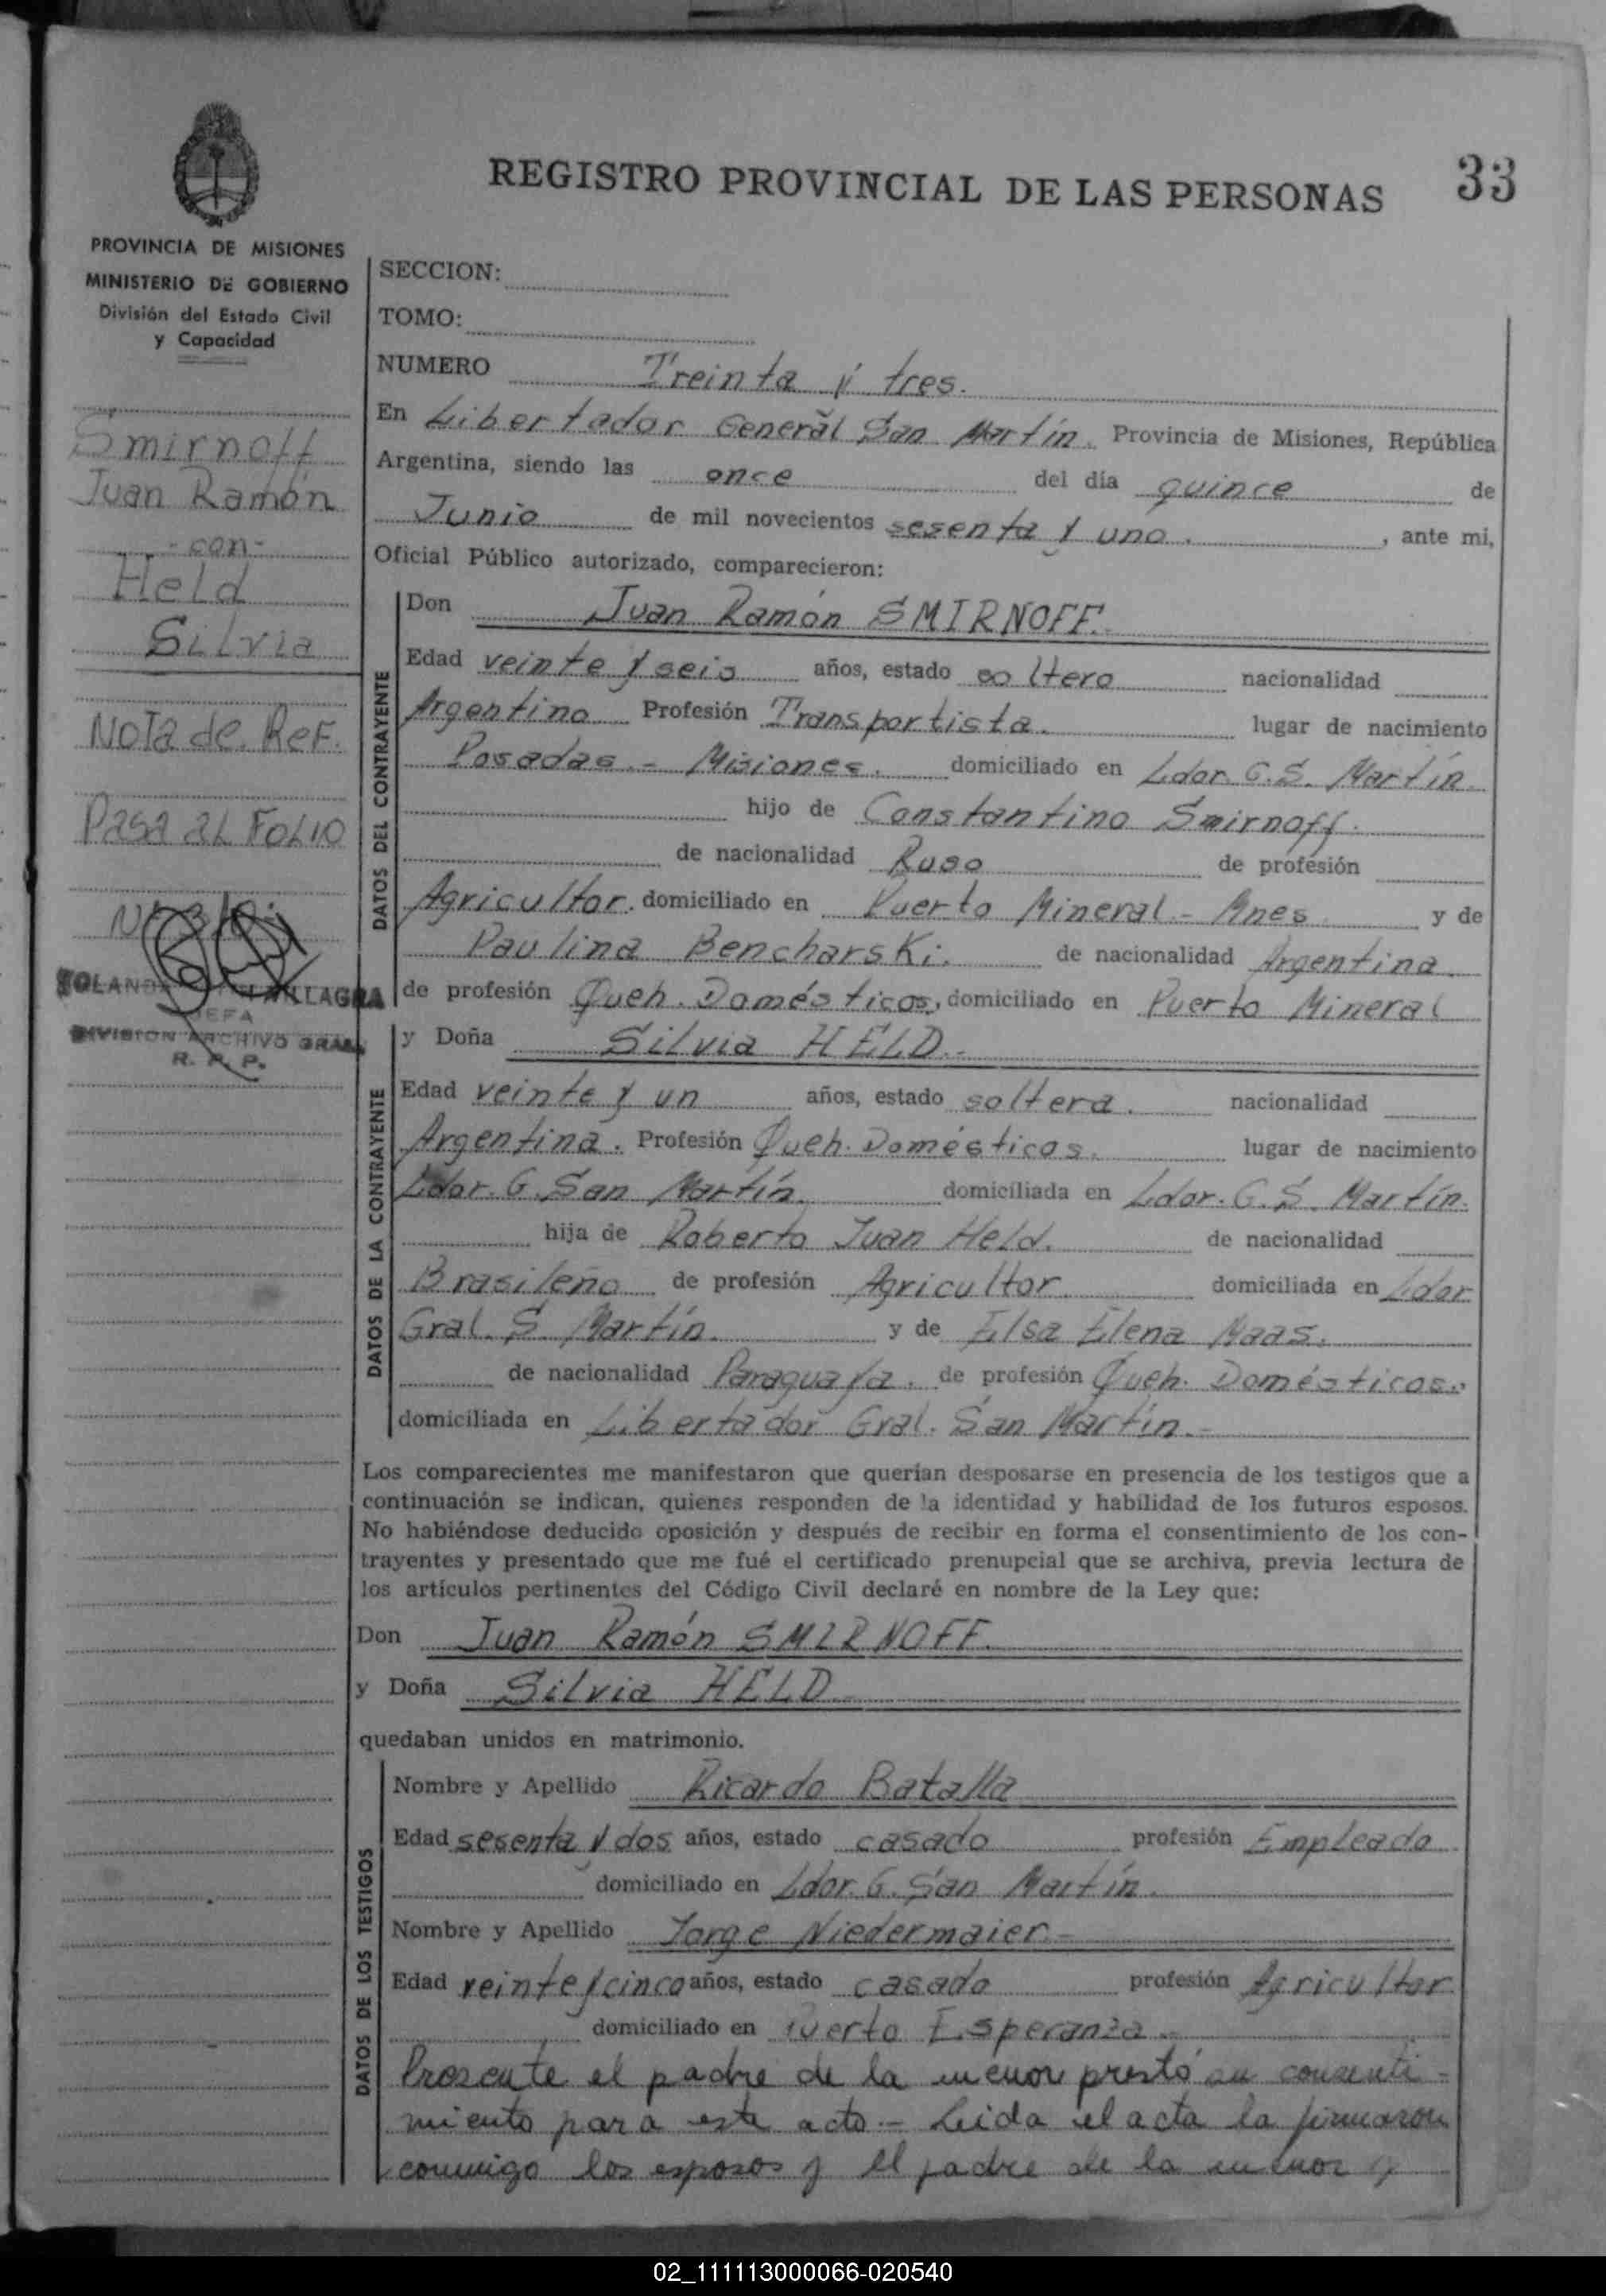 REGISTRO PROVINCIAL DE LAS PERSONAS
33
PROVINCIA DE MISIONES
MINISTERIO DE GOBIERNO
División del Estado Civil
y Capacidad
Smirnoff
Juan Ramón
-con-
Held
Silvia
Nota de Ref.
Pasa al Folio
DIVISION ARCHIVO GRAL
R. P. P.
SECCION:
TOMO:
NUMERO Treinta y tres.
En Libertador General San Martín. Provincia de Misiones, República
Argentina, siendo las once del día quince de
Junio de mil novecientos sesenta y uno. , ante mi,
Oficial Público autorizado, comparecieron:
DATOS DEL CONTRAYENTE
Don Juan Ramón SMIRNOFF.
Edad veinte y seis años, estado soltero nacionalidad
Argentino Profesión Transportista. lugar de nacimiento
Posadas.- Misiones. domiciliado en Ldor. G. S. Martín.
hijo de Constantino Smirnoff.
de nacionalidad Ruso de profesión
Agricultor. domiciliado en Puerto Mineral - Mnes y de
Paulina Bencharski. de nacionalidad Argentina.
de profesión Queh. Domésticos, domiciliado en Puerto Mineral
DATOS DE LA CONTRAYENTE
y Doña Silvia HELD.-
Edad veinte y un años, estado soltera. nacionalidad
Argentina. Profesión Queh. Domésticos. lugar de nacimiento
Ldor. G. San Martín. domiciliada en Ldor. G. S. Martín.
hija de Roberto Juan Held. de nacionalidad
Brasileño de profesión Agricultor domiciliada en Ldor
Gral. S. Martín. y de Elsa Elena Maas.
de nacionalidad Paraguaya. de profesión Queh. Domésticos.,
domiciliada en Libertador Gral. San Martín.-
Los comparecientes me manifestaron que querían desposarse en presencia de los testigos que a
continuación se indican, quienes responden de la identidad y habilidad de los futuros esposos.
No habiéndose deducido oposición y después de recibir en forma el consentimiento de los con-
trayentes y presentado que me fué el certificado prenupcial que se archiva, previa lectura de
los artículos pertinentes del Código Civil declaré en nombre de la Ley que:
Don Juan Ramón SMIRNOFF.
y Doña Silvia HELD
quedaban unidos en matrimonio.
DATOS DE LOS TESTIGOS
Nombre y Apellido Ricardo Batalla
Edad sesenta y dos años, estado casado profesión Empleado
domiciliado en Ldor. G. San Martín.
Nombre y Apellido Jorge Niedermaier.-
Edad veinte y cinco años, estado casado profesión Agricultor
domiciliado en Puerto Esperanza.-
Presente el padre de la menor prestó su consenti-
miento para este acto.- Leida el acta la firmaron
conmigo los esposos y el padre de la menor y
02_111113000066-020540